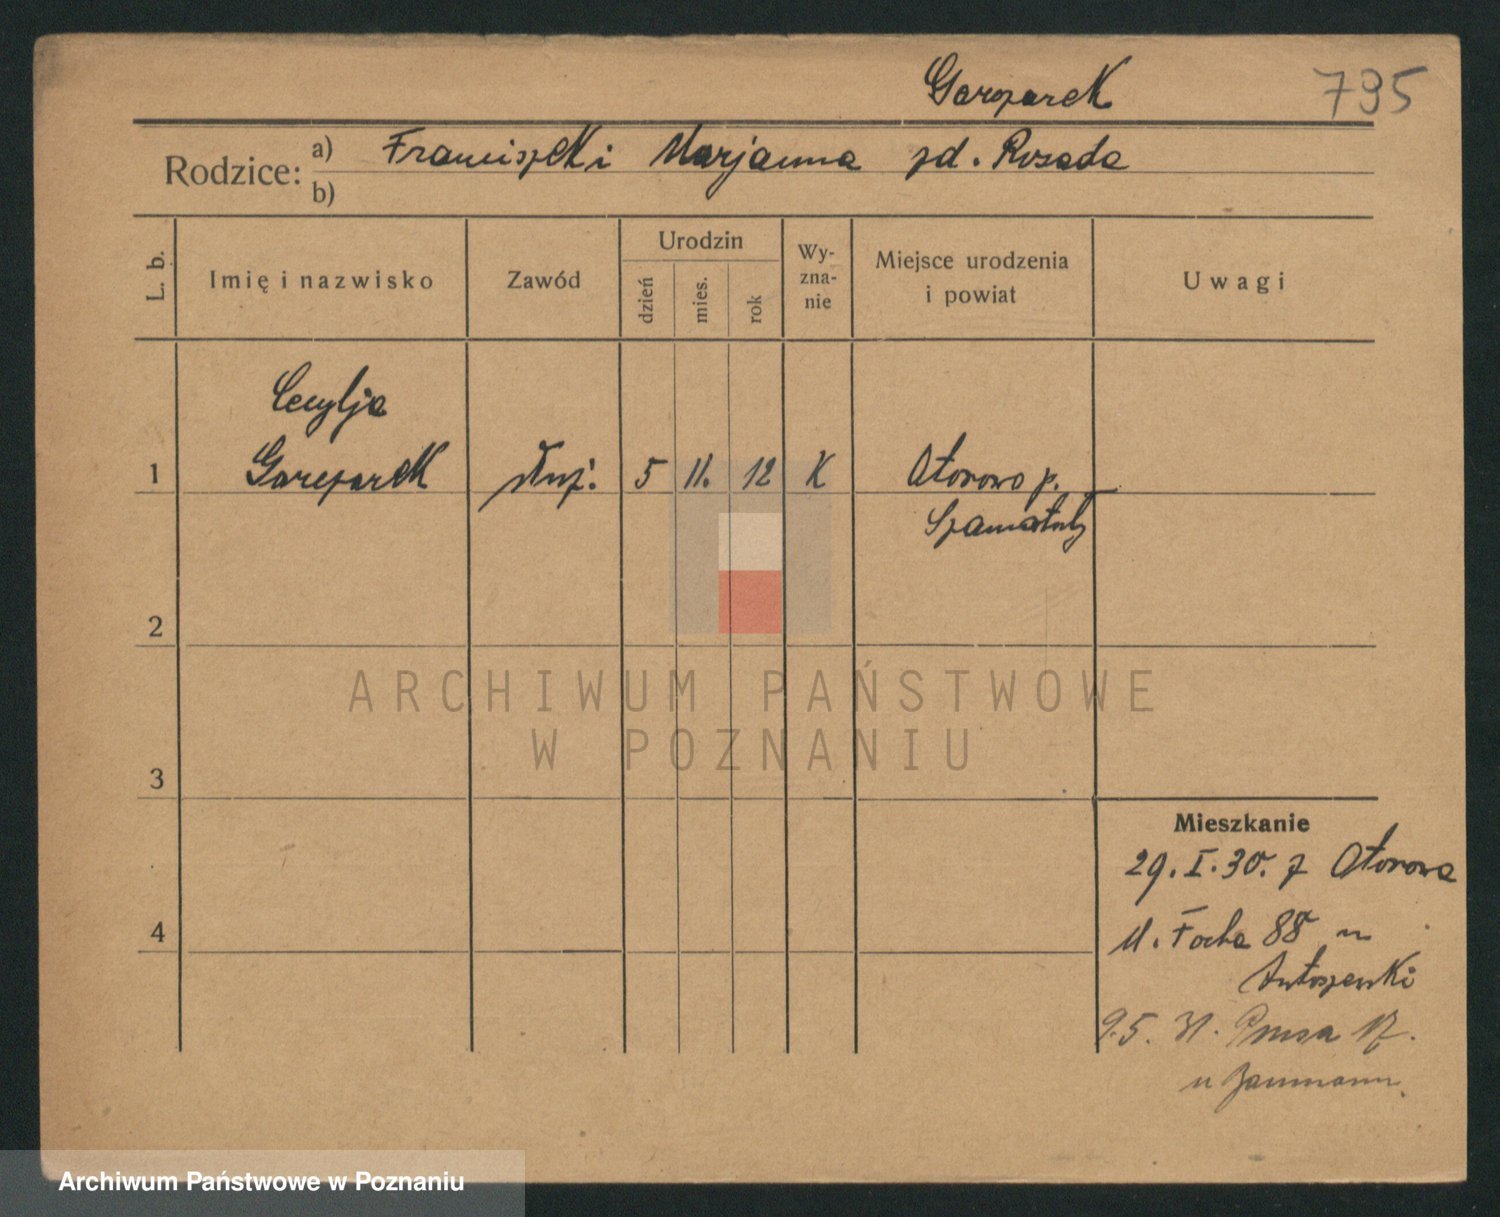 Garczarek 795
Rodzice: a) Franciszek i Marjanna zd. Rosada
b)
L. b. Imię i nazwisko Zawód Urodzin dzień mies. rok Wy-zna-nie Miejsce urodzenia i powiat Uwagi
Cecylja
1 Garczarek służ. 5 11. 12 K Otorowo p.
Szamotuły
2
ARCHIWUM PAŃSTWOWE
W POZNANIU
3
Mieszkanie
29.I.30. z Otorowa
4
ul. Focha 88 u
Antoszewski
9.5.31. Prusa 17.
u Baumann.
Archiwum Państwowe w Poznaniu